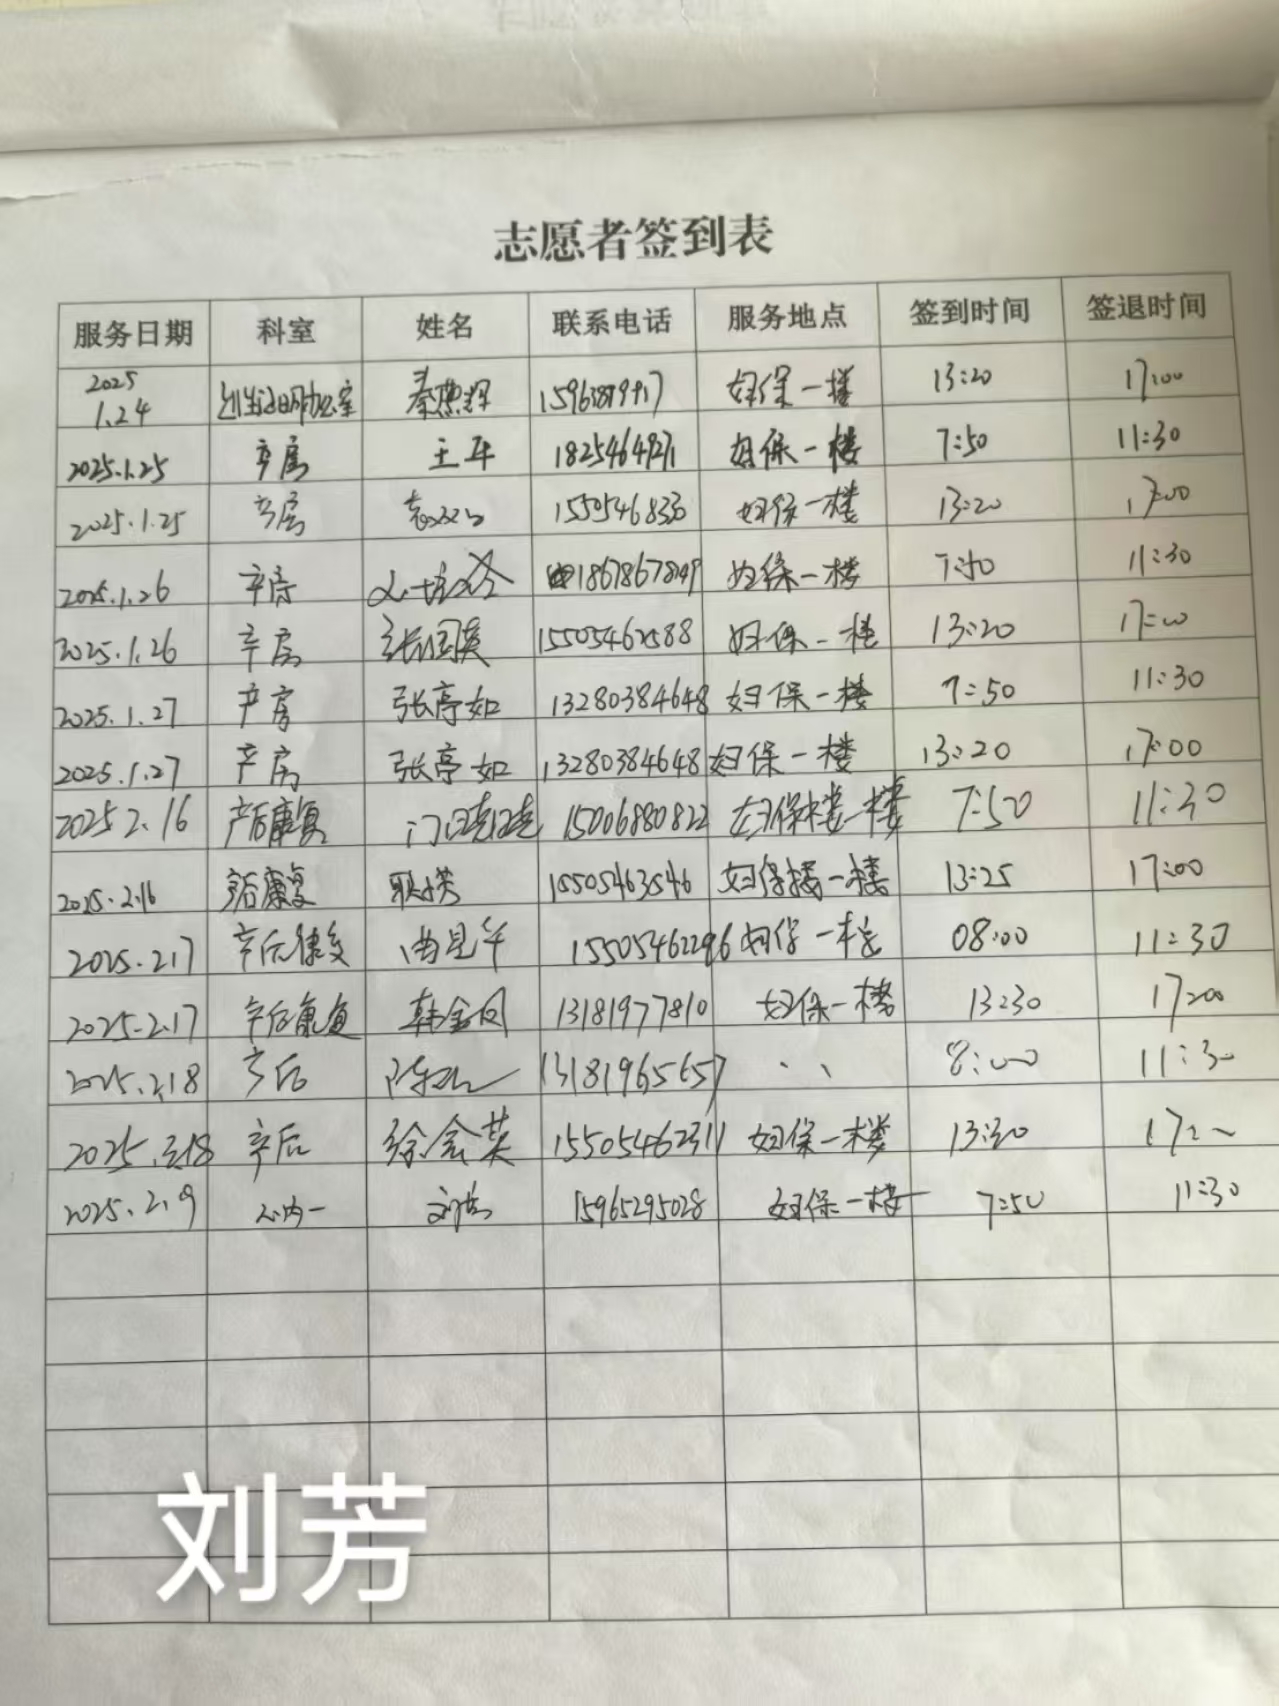 志愿者签到表
服务日期 科室 姓名 联系电话 服务地点 签到时间 签退时间
2025
1.24 妇保一楼 13:20 17:00
2025.1.25 产房 王平 妇保一楼 7:50 11:30
2025.1.25 产房 妇保一楼 13:20 17:00
2025.1.26 产房 妇保一楼 7:50 11:30
2025.1.26 产房 张国英 15505462588 妇保一楼 13:20 17:00
2025.1.27 产房 张亭如 13280384648 妇保一楼 7:50 11:30
2025.1.27 产房 张亭如 13280384648 妇保一楼 13:20 17:00
2025.2.16 产后康复 门晓晓 15006880822 妇保楼一楼 7:50 11:30
2025.2.16 产后康复 15505463546 妇保楼一楼 13:25 17:00
2025.2.17 产后康复 15505462296 妇保一楼 08:00 11:30
2025.2.17 产后康复 韩金凤 13181977810 妇保一楼 13:30 17:00
2025.2.18 产后 13181965657 8:00 11:30
产后 徐会英 15505462311 妇保一楼 13:30
2025.2.19 心内一 刘芳 15965295028 妇保一楼 7:50 11:30
刘芳